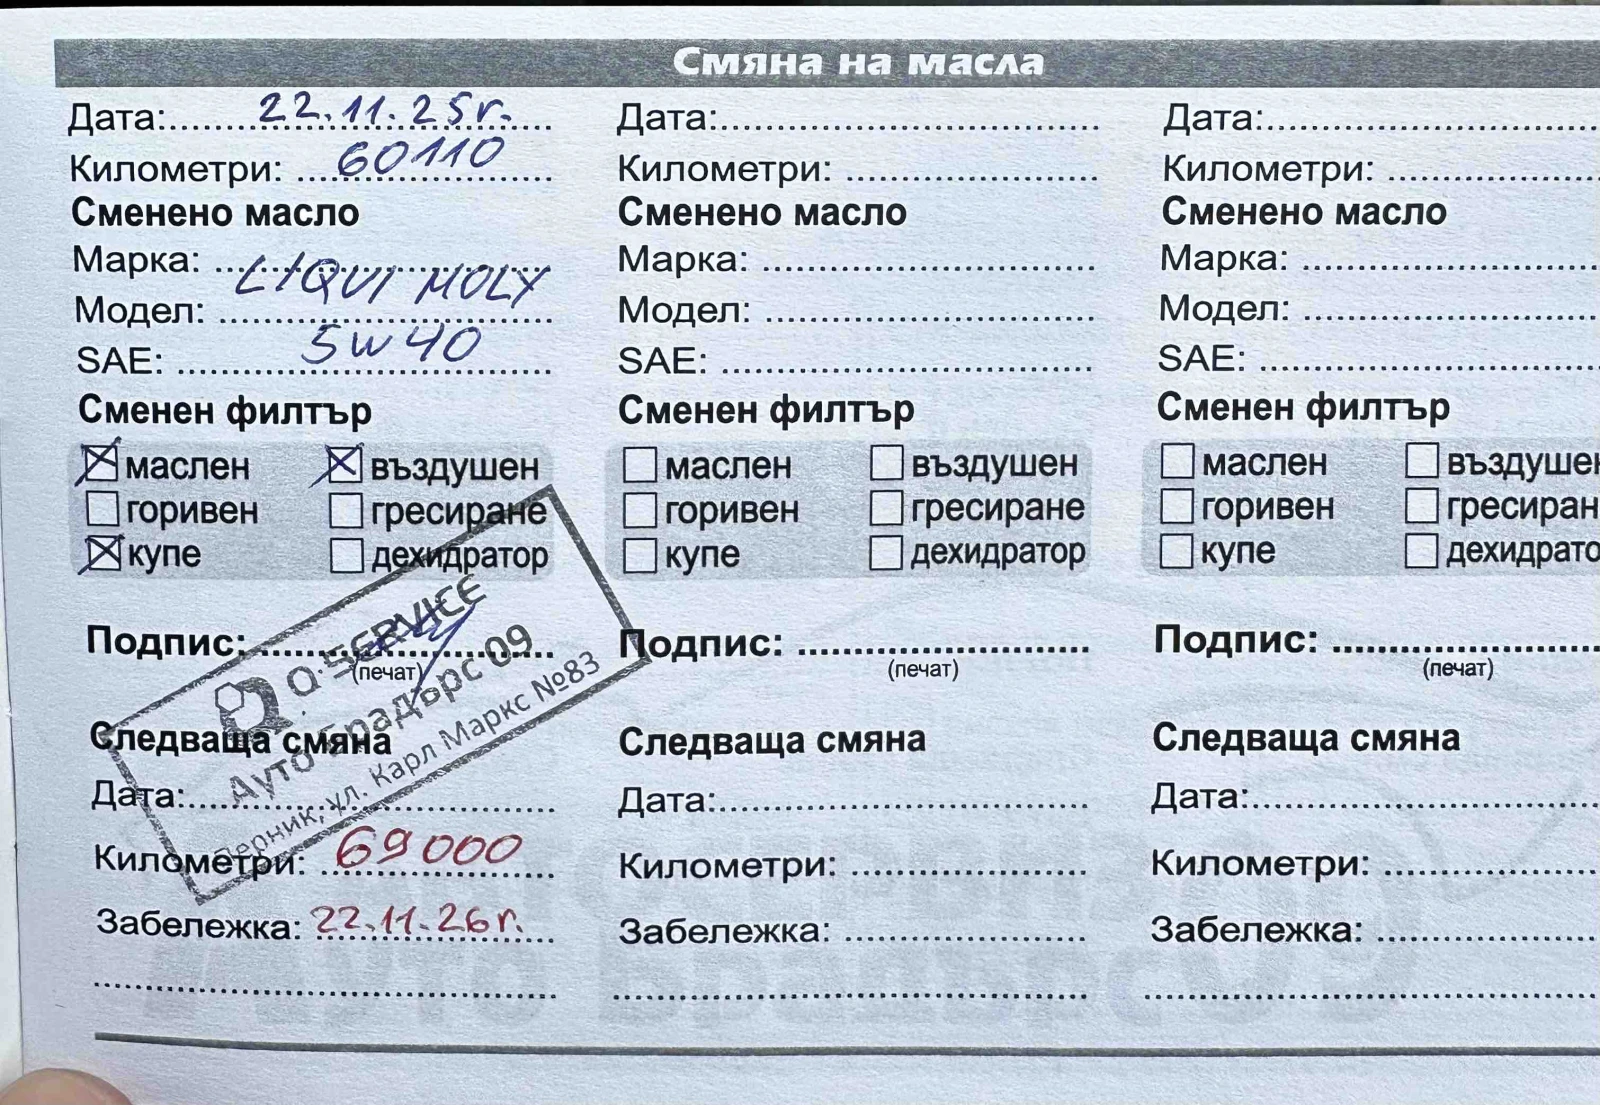 Смяна на масла
Дата: 22.11.25г.
Километри: 60110
Сменено масло
Марка: LIQUI MOLY
Модел:
SAE: 5W40
Сменен филтър
маслен въздушен
горивен гресиране
купе дехидратор
Подпис:
(печат)
Q·SERVICE
Ауто Брадърс 09
Перник, ул. Карл Маркс №83
Следваща смяна
Дата:
Километри: 69000
Забележка: 22.11.26г.
Дата:
Километри:
Сменено масло
Марка:
Модел:
SAE:
Сменен филтър
маслен въздушен
горивен гресиране
купе дехидратор
Подпис:
(печат)
Следваща смяна
Дата:
Километри:
Забележка:
Дата:
Километри:
Сменено масло
Марка:
Модел:
SAE:
Сменен филтър
маслен въздушен
горивен гресиран
купе дехидрато
Подпис:
(печат)
Следваща смяна
Дата:
Километри:
Забележка: